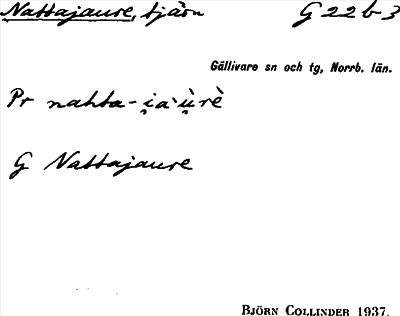 Nattajaure, tjärn G 22 b 3
Gällivare sn och tg, Norrb. län.
Pr nahta-i̯a·u̯rè
G Nattajaure
BJÖRN COLLINDER 1937.